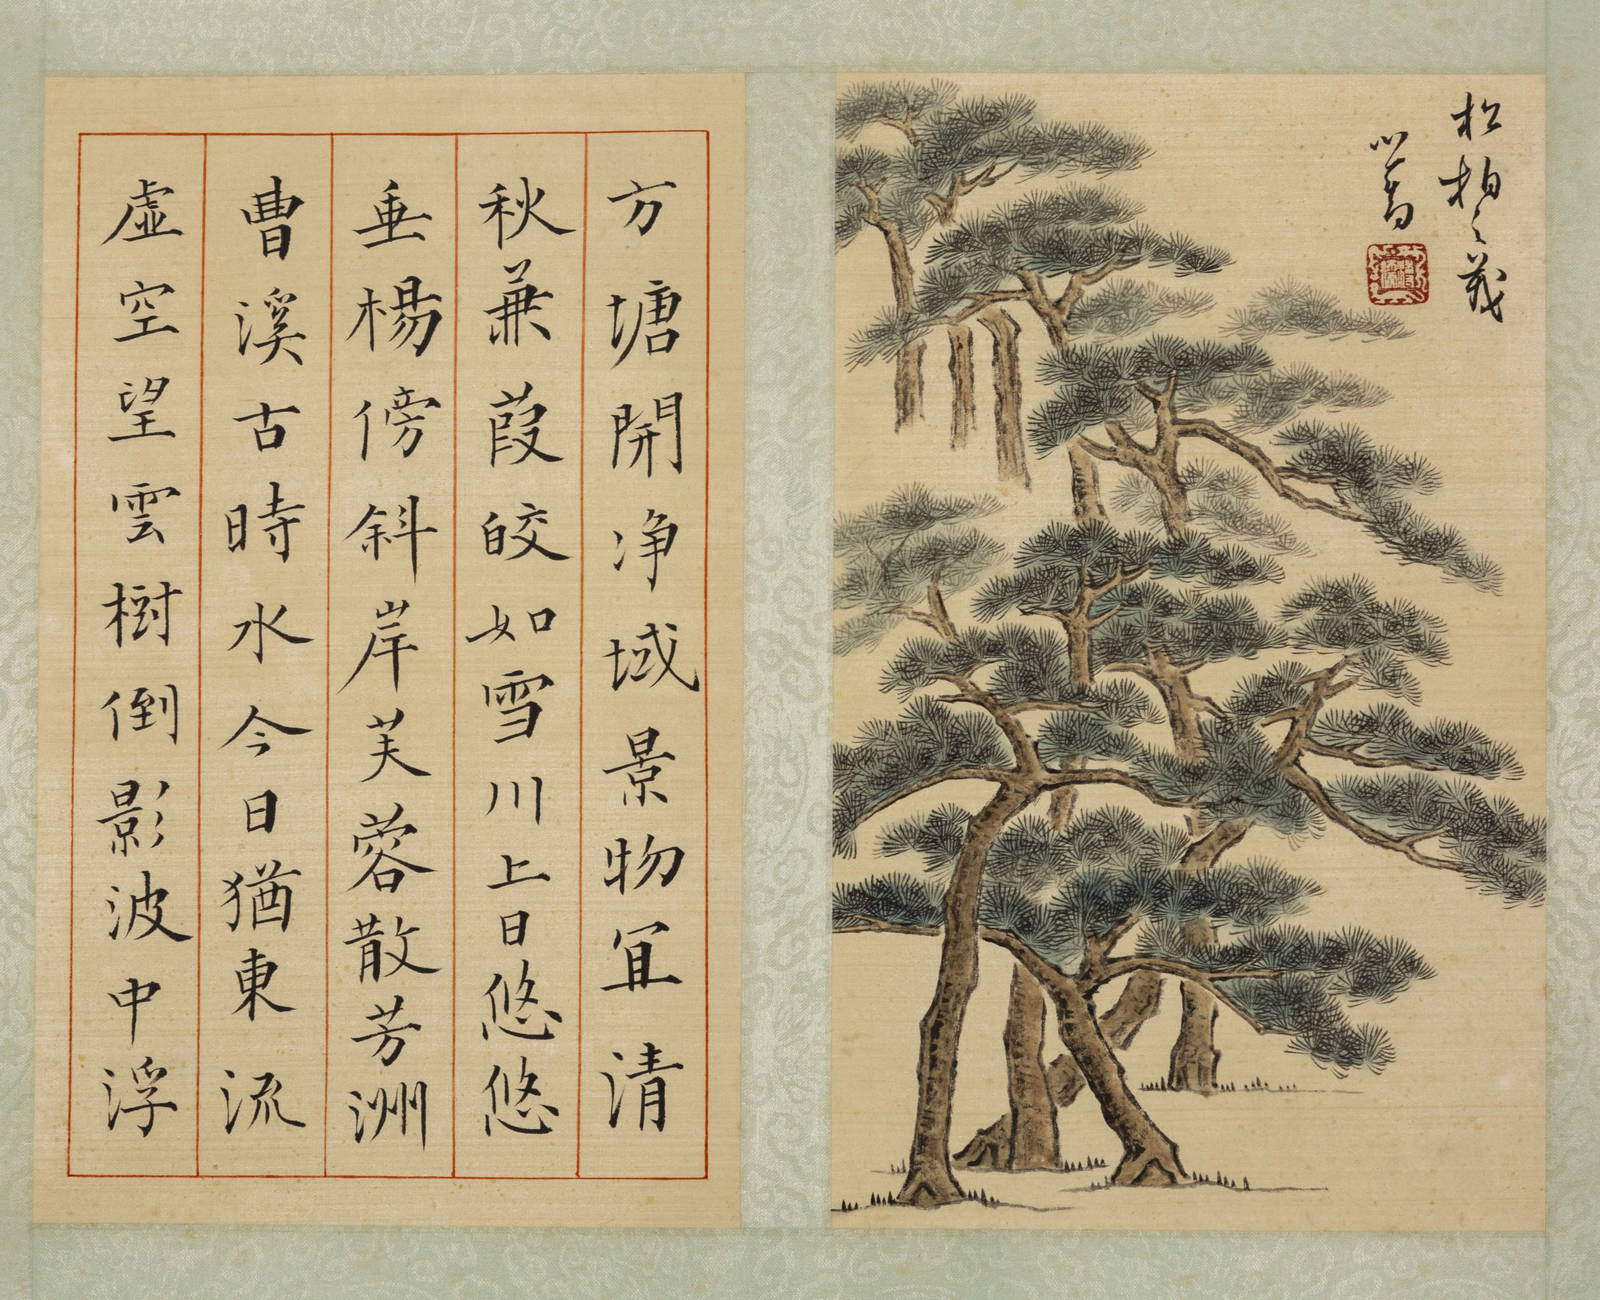 松柏之茂
心畬
方塘開净域景物宜清
秋兼葭皎如雪川上日悠悠
垂楊傍斜岸芙蓉散芳洲
曹溪古時水今日猶東流
虛空望雲樹倒影波中浮